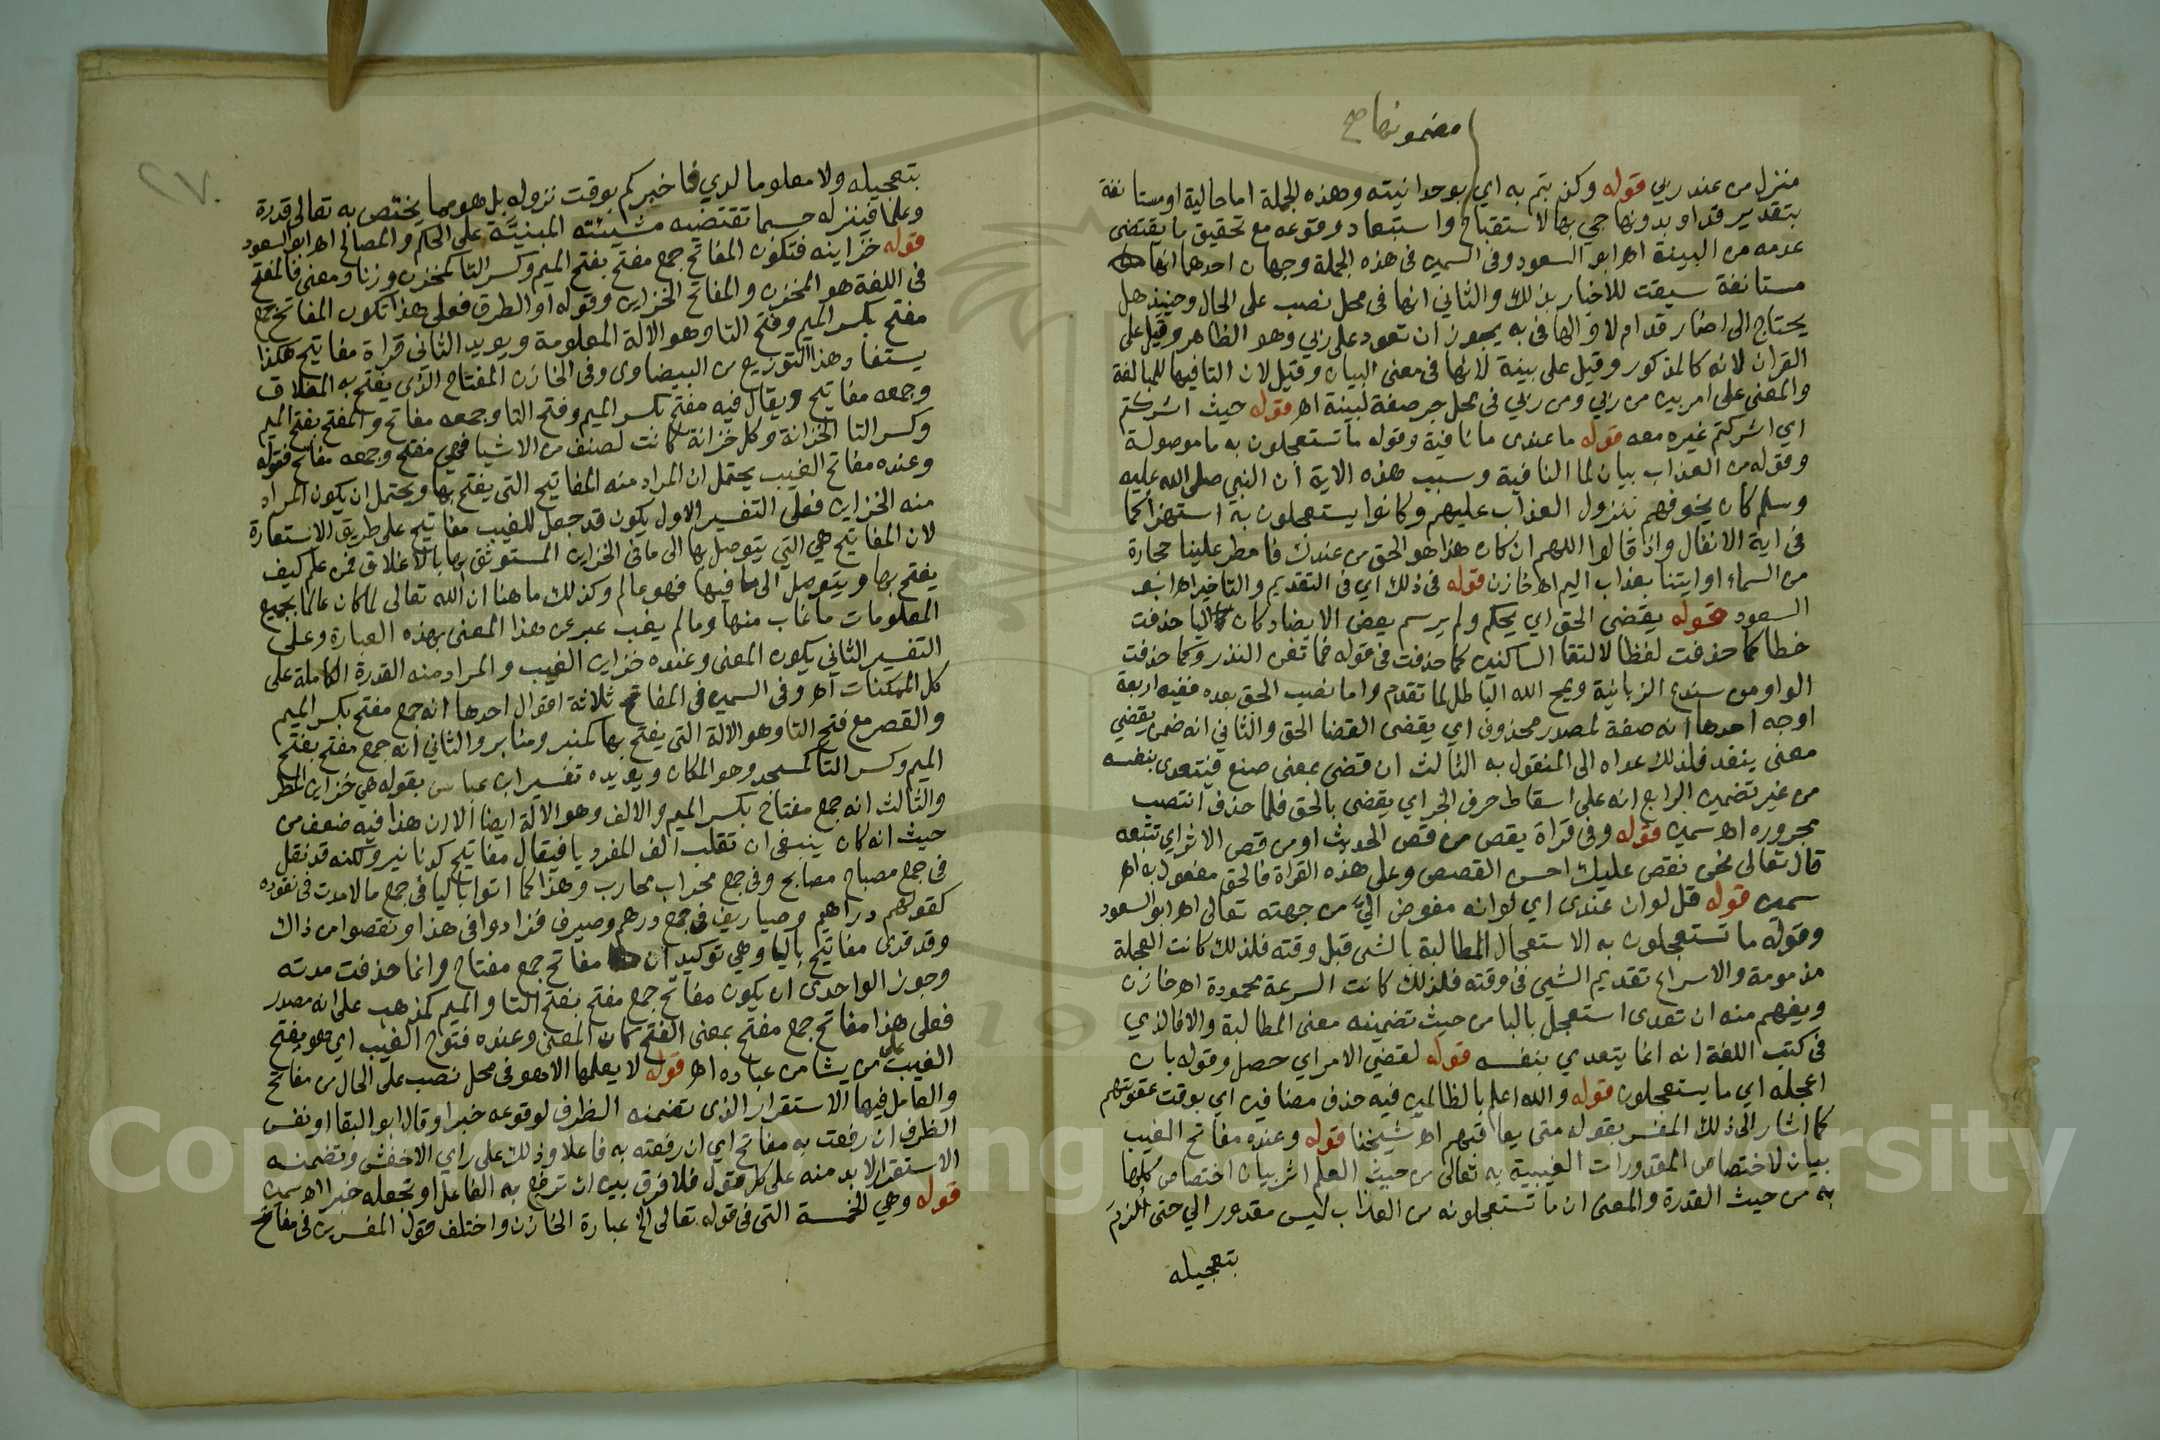 مضمونها صح
منزل من عند ربي قوله وكذبتم به اي بوحدانيته وهذه الجملة اما حالية او مستانفة
بتقدير قد او بدونها جي بها لاستقباح واستبعاد وقوعه مع تحقيق ما يقتضى
عدمه من البينة اه ابو السعود وفى السمين فى هذه الجملة وجهان احدهما انها
مستانفة سيقت للاخبار بذلك والثاني انها فى محل نصب على الحال وحينئذ هل
يحتاج الى اضمار قد ام لا والها فى به يجوز ان تعود على ربي وهو الظاهر وقيل على
القران لانه كالمذكور وقيل على بينة لانها فى معنى البيان وقيل لان التا فيها للمبالغة
والمعنى على امر بين من ربي ومن ربي فى محل جر صفة لبينة اه قوله حيث اشركتم
اي اشركتم غيره معه قوله ما عندى ما نافية وقوله ما تستعجلون به ما موصولة
وقوله من العذاب بيان لما النافية وسبب هذه الاية أن النبي صلى الله عليه
وسلم كان يخوفهم بنزول العذاب عليهم وكانوا يستعجلون به استهزأ كما
فى اية الانفال واذ قالوا اللهم ان كان هذا هو الحق من عندك فامطر علينا حجارة
من السماء او ايتنا بعذاب اليم اه خازن قوله فى ذلك اي فى التقديم والتاخير اه ابو
السعود قوله يقضى الحق اي يحكم ولم يرسم يقض الا بضاد كان اليا حذفت
خطا كما حذفت لفظا لالتقا الساكنين كما حذفت فى قوله فما تغن النذر وكما حذفت
الواو من سندع الزبانية ويمح الله الباطل لما تقدم واما نصب الحق بعده ففيه اربعة
اوجه احدها انه صفة لمصدر محذوف اي يقضى القضا الحق والثاني انه ضمن يقضي
معنى ينفذ فلذلك عداه الى المفعول به الثالث ان قضى بمعنى صنع فيتعدى بنفسه
من غير تضمين الرابع انه على اسقاط حرف الجر اي يقضى بالحق فلما حذف انتصب
مجروره اه سمين قوله وفى قراة يقص من قص الحديث او من قص الاثر اي تتبعه
قال تعالى نحن نقص عليك احسن القصص وعلى هذه القراة فالحق مفعول به اه
سمين قوله قل لو ان عندى اي لو انه مفوض اليّ من جهته تعالى اه ابو السعود
وقوله ما تستعجلون به الاستعجال المطالبة بالشى قبل وقته فلذلك كانت العجلة
مذمومة والاسراع تقديم الشيى فى وقته فلذلك كانت السرعة محمودة اه خازن
ويفهم منه ان تعدى استعجل بالبا من حيث تضمينه معنى المطالبة والا فالذي
فى كتب اللغة انه انما يتعدي بنفسه قوله لقضي الامر اي حصل وقوله بان
اعجله اي ما يستعجلون قوله والله اعلم بالظالمين فيه حذف مضاف اي بوقت عقوبتهم
كما اشار الى ذلك المفسر بقوله متى يعاقبهم اه شيخنا قوله وعنده مفاتح الغيب
بيان لاختصاص المقدورات الغيبية به تعالى من حيث العلم اثر بيان اختصاص كلها
به من حيث القدرة والمعنى ان ما تستعجلونه من العذاب ليس مقدور الي حتى ألزمَ
بتعجيله
٢٧.
بتعجيله ولا معلوما لدي فاخبركم بوقت نزوله بل هو مما يختص به تعالى قدرة
وعلما فينزله حسما تقتضيه مشيئته المبنية على الحكم والمصالح اه ابو السعود
قوله خزاينه فتكون المفاتح جمع مفتح بفتح الميم وكسر التا كمخزن وزنا ومعنى فالمفتح
فى اللغة هو المخزن والمفاتح الخزاين وقوله او الطرق فعلى هذا تكون المفاتح جمع
مفتح بكسر الميم وفتح التا وهو الالة المعلومة ويويد الثاني قراة مفاتيح هكذا
يستفاد هذا التوزيع من البيضاوى وفى الخازن المفتاح الذى يفتح به المغلاق
وجمعه مفاتيح ويقال فيه مفتح بكسر الميم وفتح التا وجمعه مفاتح والمفتح بفتح الميم
وكسر التا الخزانة وكل خزانة كانت لصنف من الاشيا فهى مفتح وجمعه مفاتح فقوله
وعنده مفاتح الغيب يحتمل ان المراد منه المفاتيح التى يفتح بها ويحتمل ان يكون المراد
منه الخزاين فعلى التفسير الاول يكون قد جعل للغيب مفاتيح على طريق الاستعارة
لان المفاتيح هي التي يتوصل بها الى ما فى الخزاين المستوثق بها بالاغلاق فمن علم كيف
يفتح بها ويتوصل الى ما فيها فهو عالم وكذلك ما هنا ان الله تعالى لما كان عالما بجميع
المعلومات ما غاب منها وما لم يغب عبر عن هذا المعنى بهذه العبارة وعلى
التفسير الثاني يكون المعنى وعنده خزاين الغيب والمراد منه القدرة الكاملة على
كل الممكنات اه وفى السمين فى المفاتح ثلاثة اقوال احدها انه جمع مفتح بكسر الميم
والقصر مع فتح التا وهو الالة التى يفتح بها كمنبر ومنابر والثاني أنه جمع مفتح بفتح
الميم وكسر التا كمسجد وهو المكان ويويده تفسير ابن عباس بقوله هي خزاين المطر
والثالث انه جمع مفتاح بكسر الميم والالف وهو الالة ايضا الا ان هذا فيه ضعف من
حيث انه كان ينبغى ان تقلب الف المفرد يا فيقال مفاتيح كدنانير ولكنه قد نقل
فى جمع مصباح مصابح وفى جمع محراب محارب وهذا كما اتوا باليا فى جمع ما لا مدة فى مفرده
كقولهم دراهيم وصياريف فى جمع درهم وصيرف فزادوا فى هذا ونقصوا من ذاك
وقد قرى مفاتيح باليا وهي توكيد ان مفاتح جمع مفتاح وانما حذفت مدته
وجوز الواحدى ان يكون مفاتح جمع مفتح بفتح التا والميم كمذهب على انه مصدر
فعلى هذا مفاتح جمع مفتح بمعنى الفتح كان المعنى وعنده فتوح الغيب اي هو يفتح
الغيب على من يشا من عباده اه قوله لا يعلمها الا هو فى محل نصب على الحال من مفاتح
والعامل فيها الاستقرار الذى تضمنه الظرف لوقوعه خبرا وقال ابو البقا او نفس
الظرف ان رفعت به مفاتح اي ان رفعته به فاعلا وذلك على راي الاخفش وتضمنه
الاستقرار لا بد منه على كل قول فلا فرق بين ان ترفع به الفاعل او تجعله خبرا اه سمين
قوله وهي الخمسة التى فى قوله تعالى الخ عبارة الخازن واختلف قول المفسرين فى مفاتح